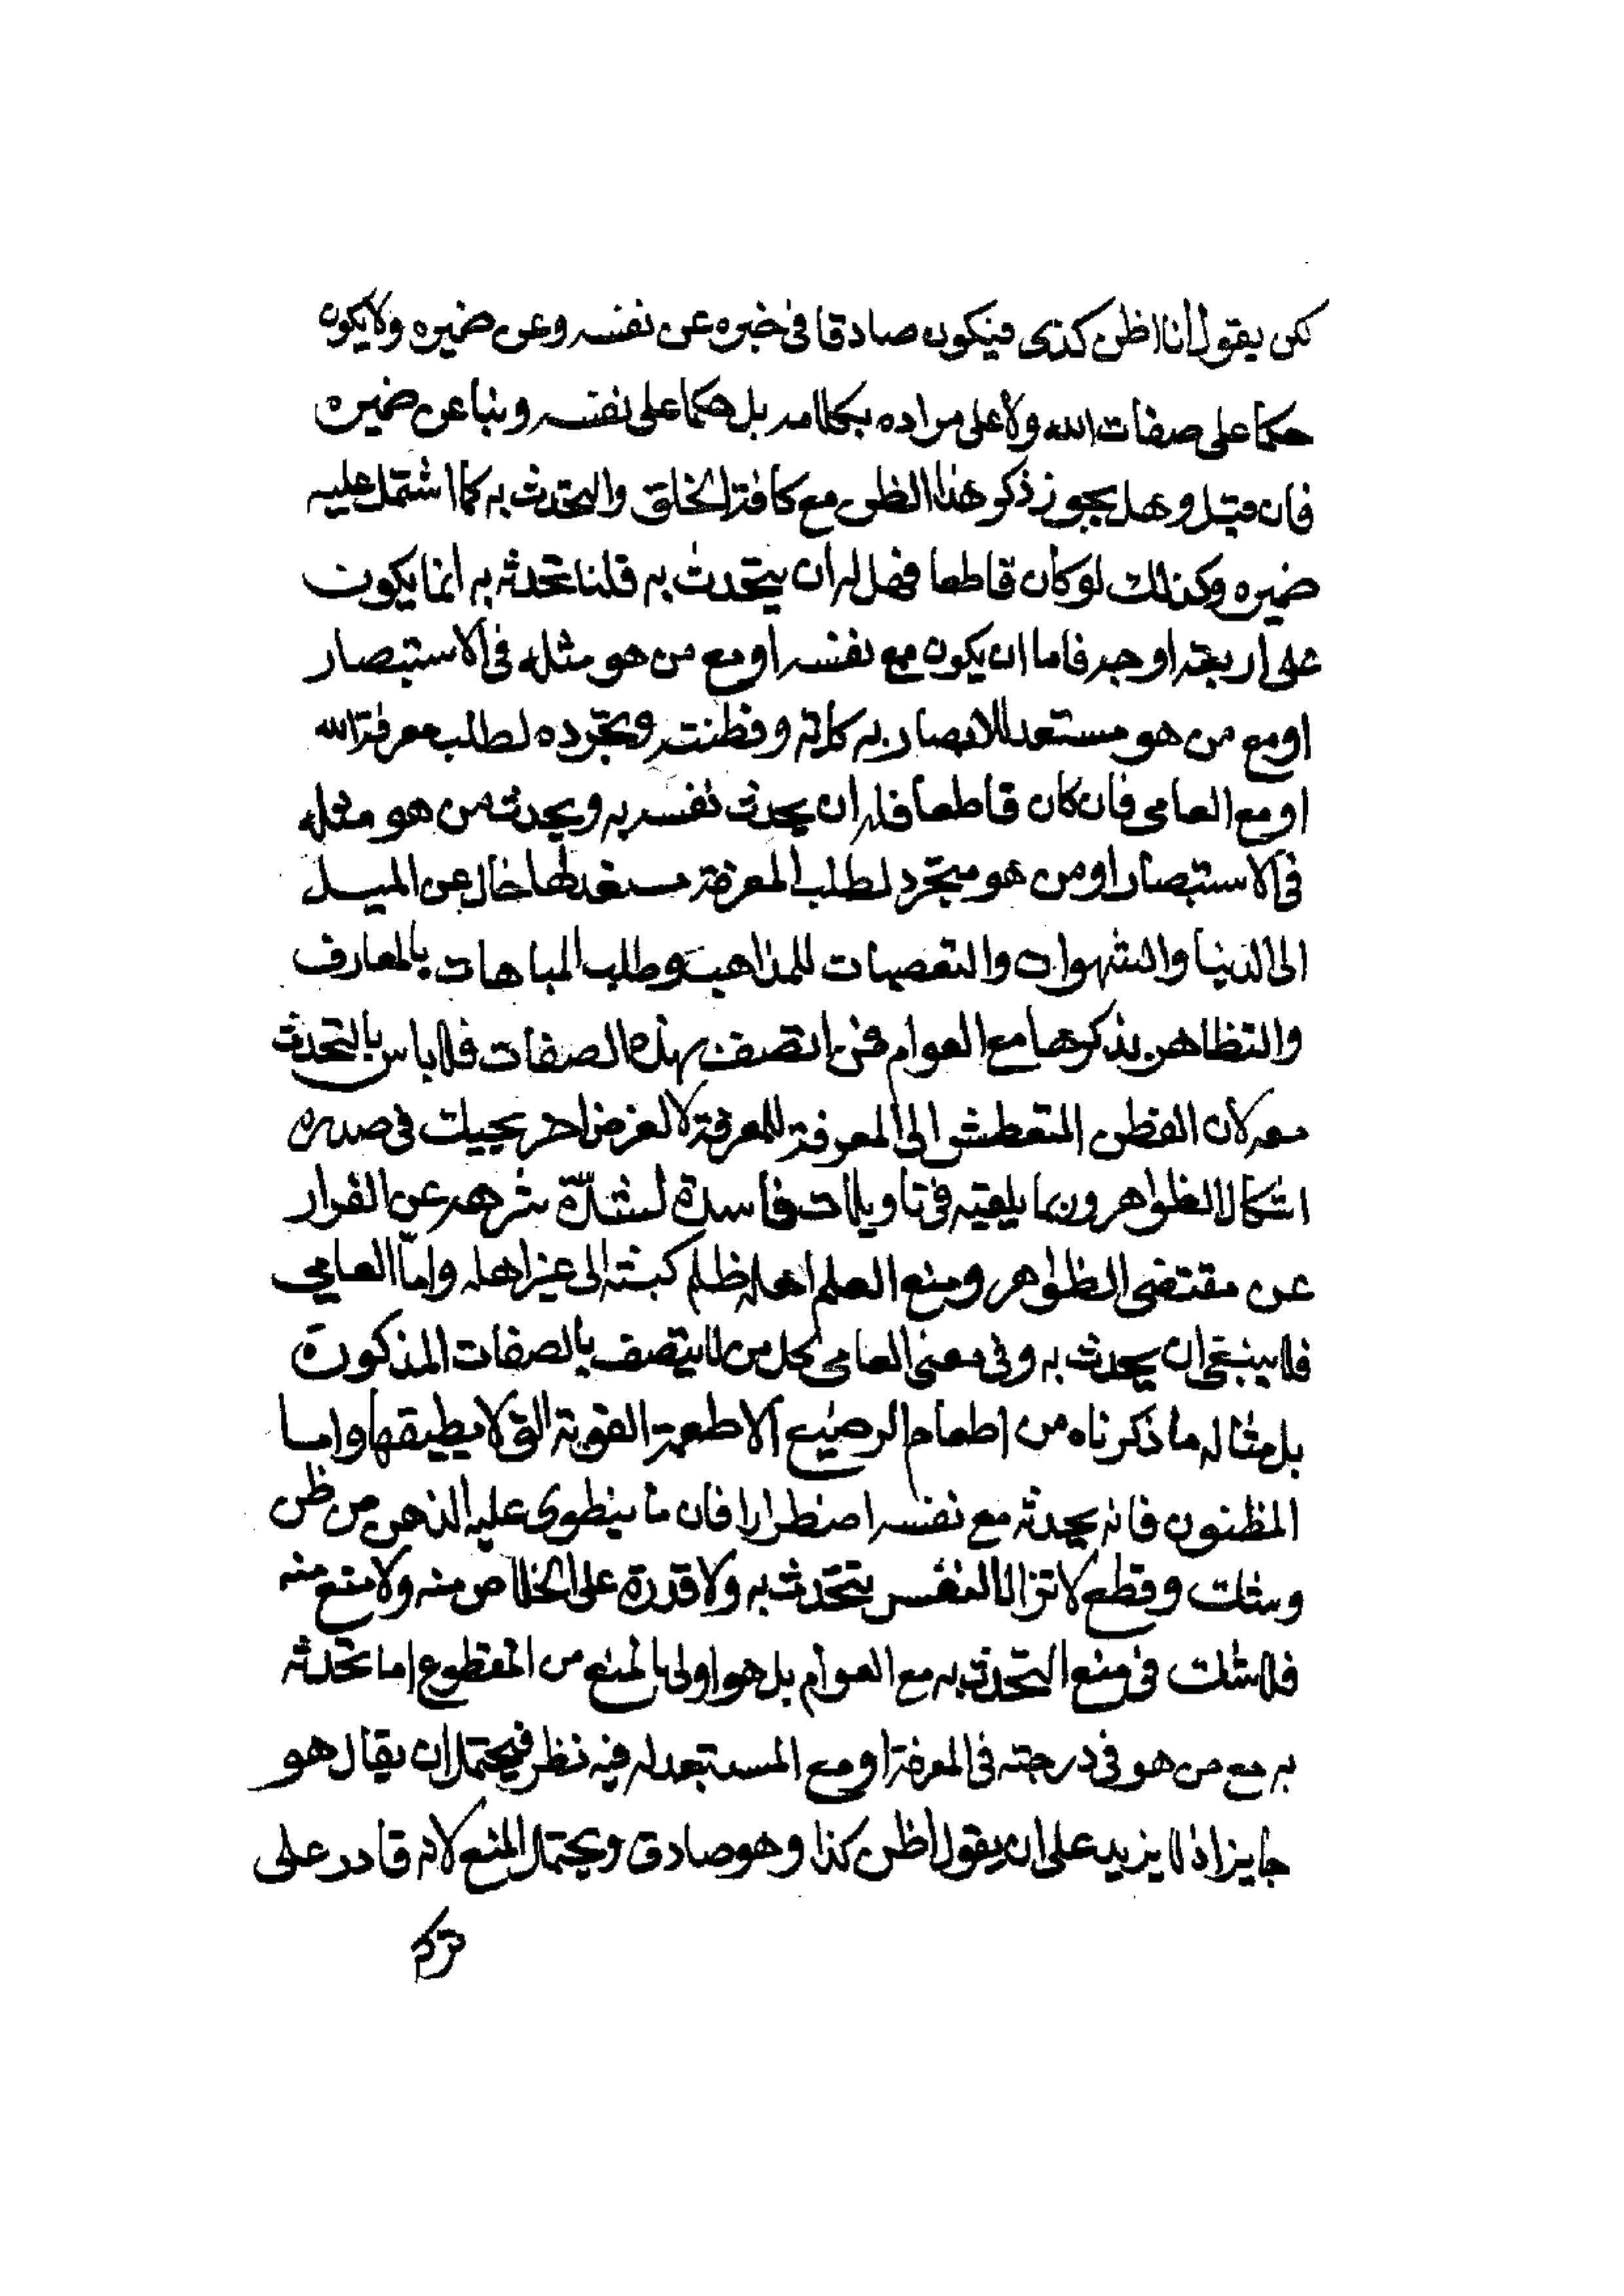 لكن يقول أنا اظن كذى فيكون صادقا فى خبره عن نفسه وعن ضميره ولا يكون
حكما على صفات الله ولا على مراده بكلامه بل حكما على نفسه ونبا عن ضميره
فان قيل وهل يجوز ذكر هذا الظن مع كافة الخلق والتحدث به كما اشتمل عليه
ضميره وكذلك لو كان قاطعا فهل له ان يتحدث به قلنا تحدثه به انما يكون
على اربعة اوجه فاما ان يكون مع نفسه او مع من هو مثله فى الاستبصار
او مع من هو مستعد للابصار به كاته وفطنته وتجرده لطلب معرفة الله
او مع العامى فان كان قاطعا فله ان يحدث نفسه به ويحدث من هو مثله
فى الاستبصار او من هو متجرد لطلب المعرفة مستعد لها خال عن الميل
الى الدنيا والشهوات والتعصبات للمذاهب وطلب المباهات بالمعارف
والتظاهر بذكرها مع العوام فمن اتصف بهذه الصفات فلا باس بالتحدث
معه لان الفطن المتعطش الى المعرفة للمعرفة لا لغرض اخر يحيك فى صدره
اشكال الظواهر وربما يلقيه فى تاويلات فاسدة لشدّة شرهه عن الفرار
عن مقتضى الظواهر ومنع العلم اهله ظلم كبثه الى غير اهله وامّا العامى
فلا ينبغى ان يحدث به وفى معنى العامى كل من لا يتصف بالصفات المذكورة
بل مثاله ما ذكرناه من اطعام الرضيع الاطعمة القوية التى لا يطيقها واما
المظنون فانه يحدثه مع نفسه اضطرارا فان ما ينطوى عليه الذهن من ظن
وشك وقطع لا تزال النفس يتحدث به ولا قدرة على الخلاص منه ولا منع منه
فلا شك فى منع التحدث به مع العوام بل هو اولى بالمنع من المقطوع اما تحدثه
به مع من هو فى درجته فى المعرفة او مع المستعد له فيه نظر فيحتمل ان يقال هو
جايز اذ لا يزيد على ان يقول اظن كذا وهو صادق ويحتمل المنع لانه قادر على
تركه